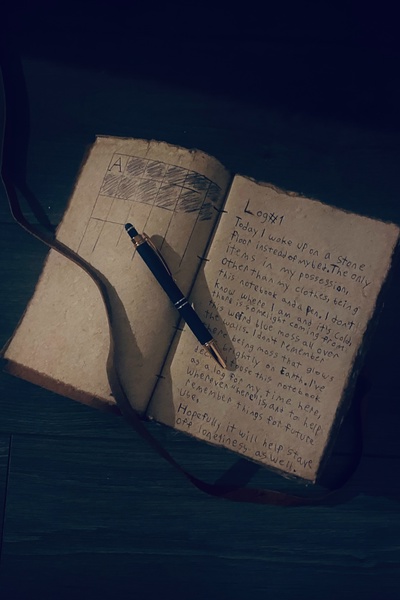 A
Log#1
Today I woke up on a stone
floor instead of my bed. The only
items in my possession,
other than my clothes, being
this notebook and a pen, I don't
know where I am and it's cold.
there is some light coming from
the weird blue moss all over
the walls. I don't remember
there being moss that glows
so brightly on Earth. I've
decided to use this notebook
as a log for my time here,
wherever where is and to help
remember things for future
use.
Hopefully it will help stave
off loneliness as well.